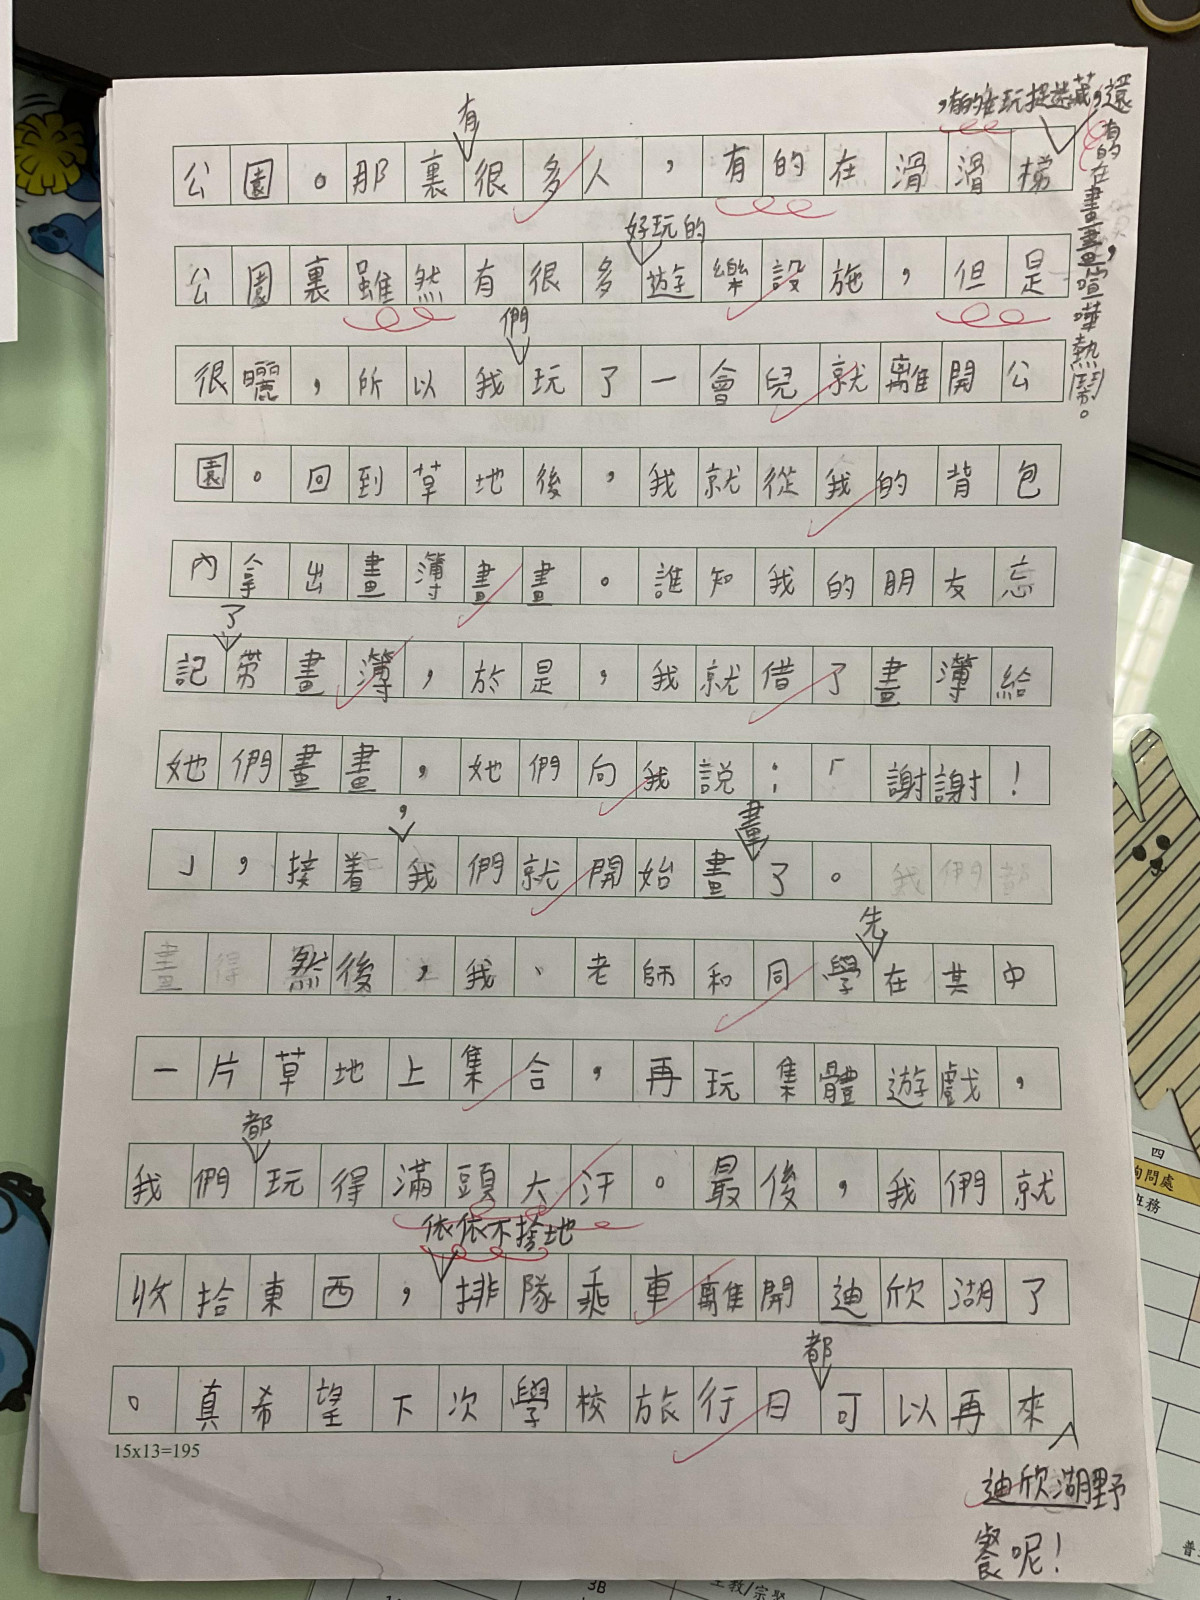 有
，有的在玩捉迷藏，還有的在畫畫，喧嘩熱鬧。
公園。那裏很多人，有的在滑滑梯
好玩的
公園裏雖然有很多遊樂設施，但是
們
很曬，所以我玩了一會兒就離開公
園。回到草地後，我就從我的背包
內拿出畫簿畫畫。誰知我的朋友忘
了
記帶畫簿，於是，我就借了畫簿給
她們畫畫，她們向我說：「謝謝！
，
畫
」，接着我們就開始畫了。我們都
先
畫得然後，我、老師和同學在其中
一片草地上集合，再玩集體遊戲，
都
我們玩得滿頭大汗。最後，我們就
依依不捨地
收拾東西，排隊乘車離開迪欣湖了
都
。真希望下次學校旅行日可以再來
15x13=195
迪欣湖野
餐呢！
四
詢問處
3B
主教/宗聚